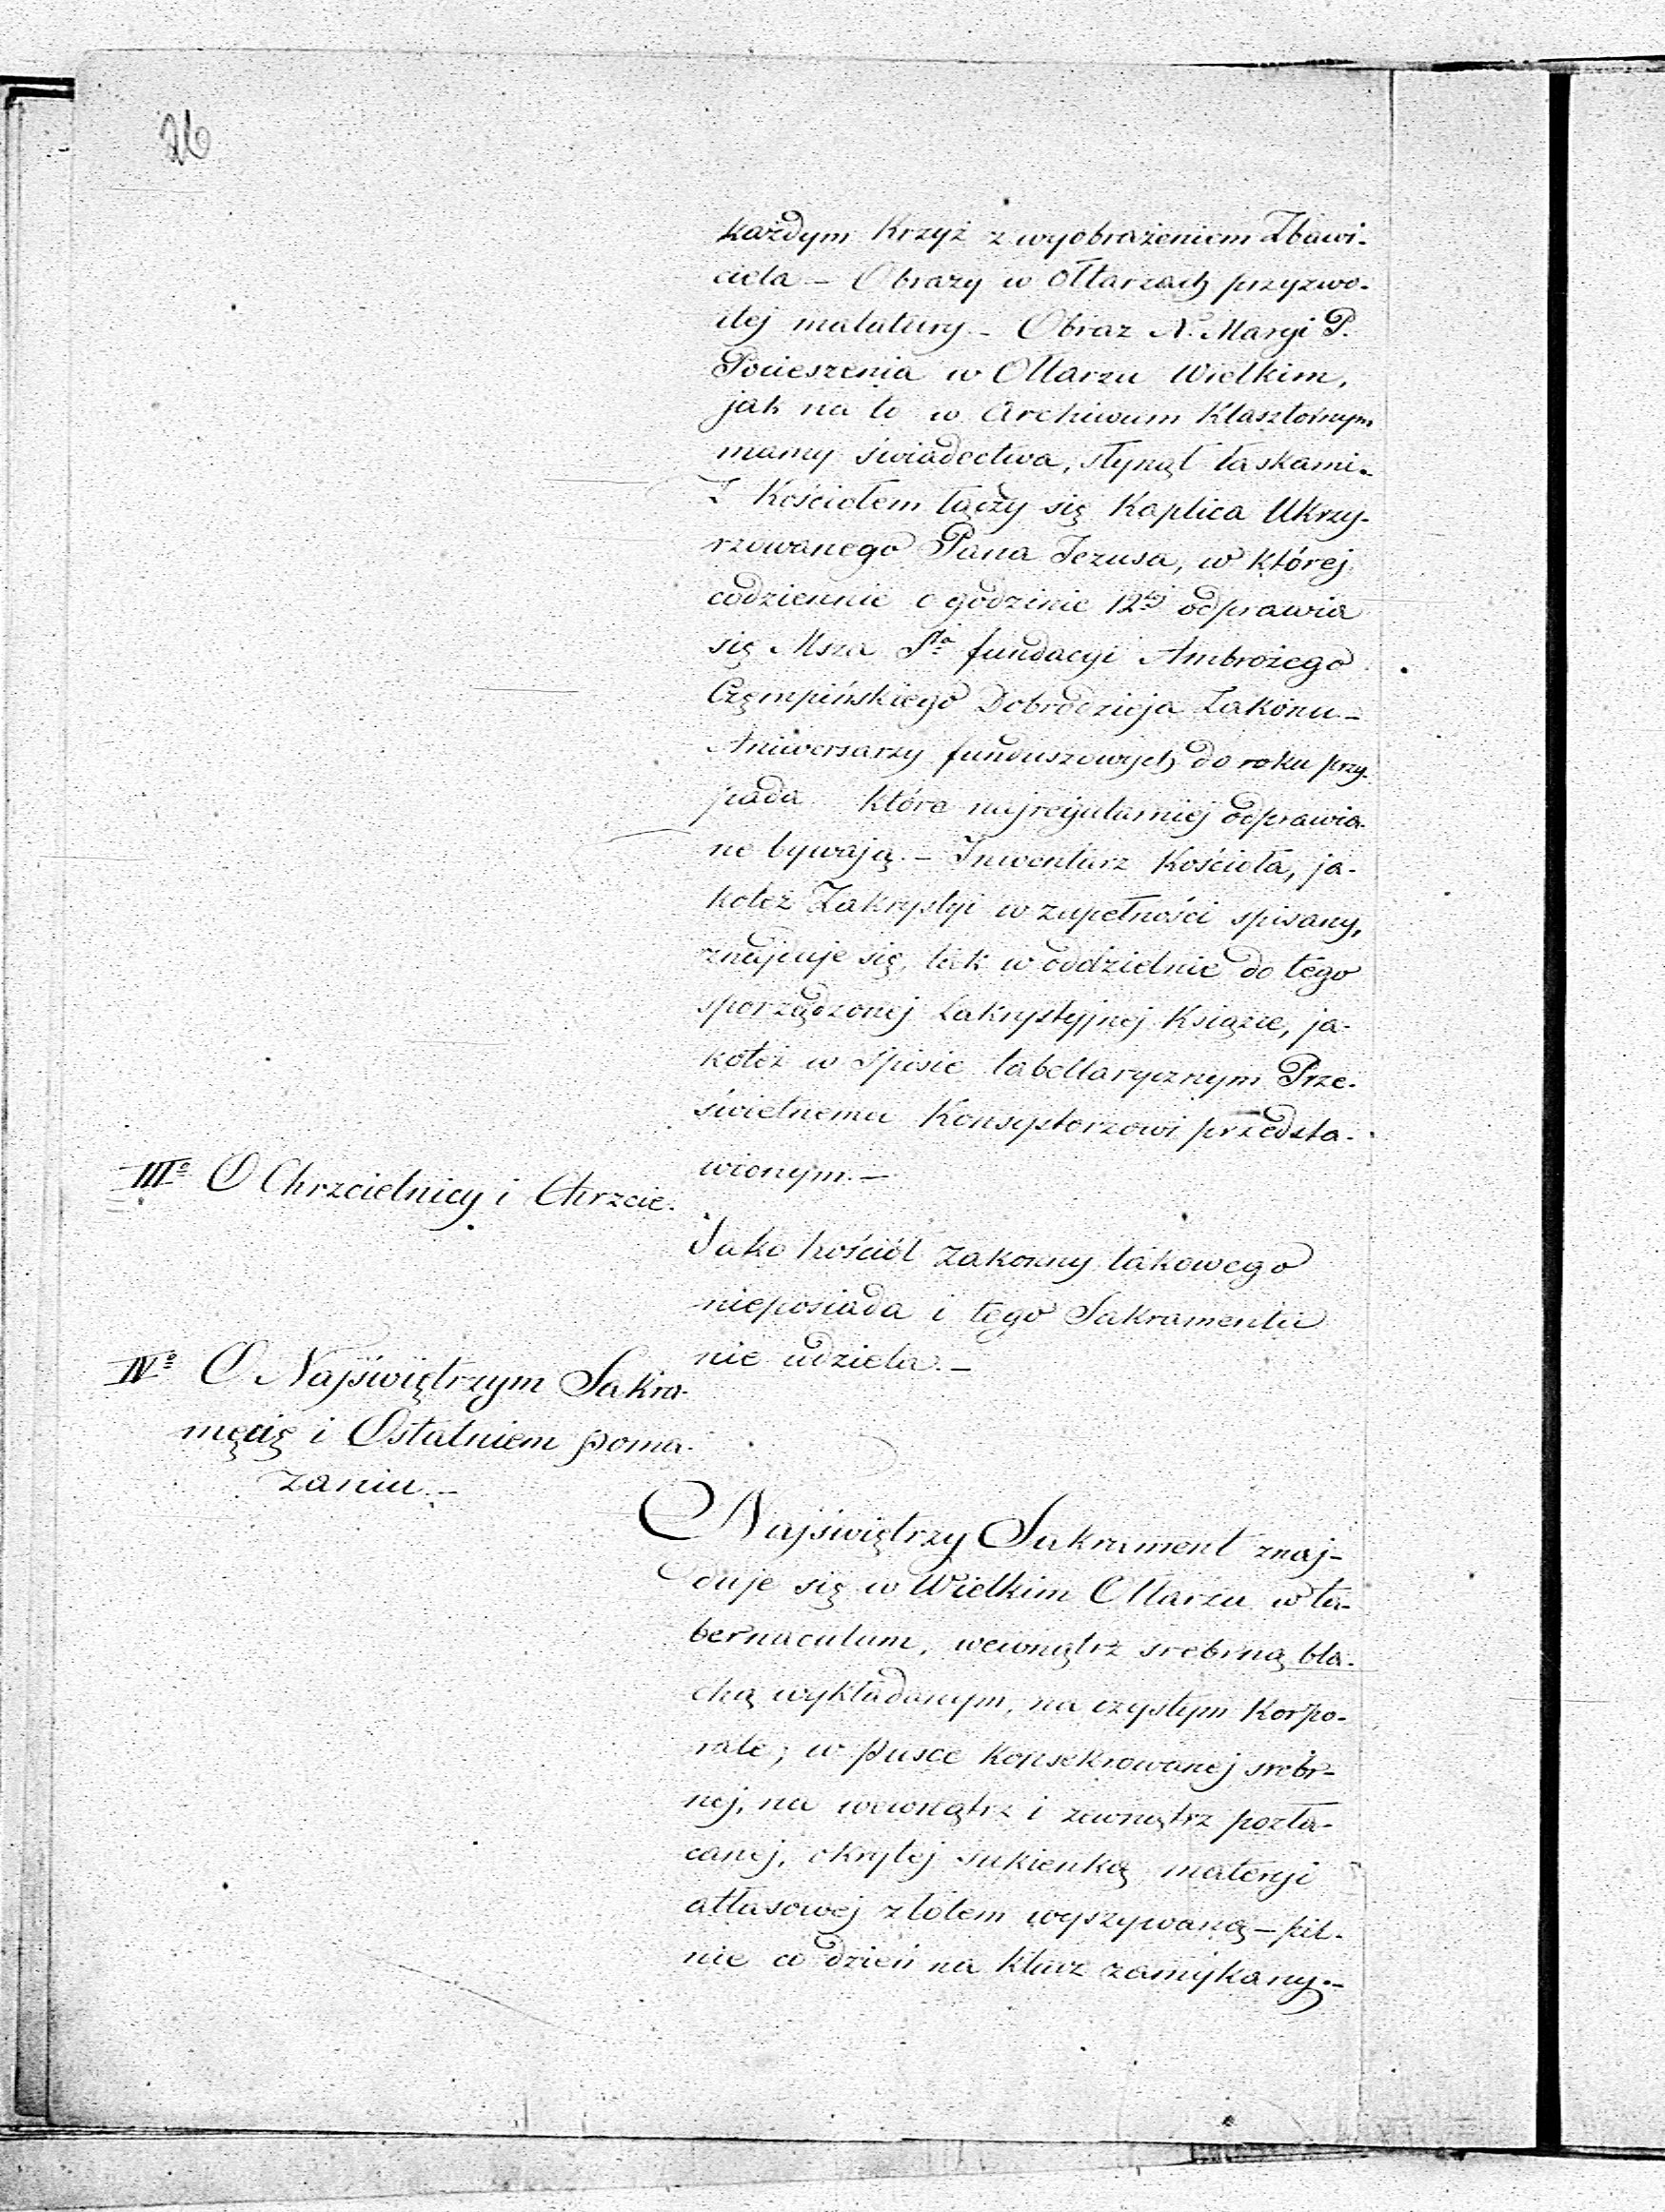 26
każdym Krzyż z wyobrażeniem Zbawi-
ciela – Obrazy w Ołtarzach przyzwo-
itej malatury. – Obraz N. Maryi P.
Pocieszenia w Ołtarzu Wielkim,
jak na to w Archiwum Klasztornym
mamy świadectwa, słynął łaskami.
Z Kościołem łączy się Kaplica Ukrzy-
rzowanego Pana Jezusa, w której
codziennie o godzinie 12tej odprawia
się Msza Sta fundacyi Ambrożego
Czempińskiego Dobrodzieja Zakonu –
Aniwersarzy funduszowych do roku przy-
pada które najregularniej odprawia-
ne bywają. – Inwentarz Kościoła, ja-
koteż Zakrystyi w zupełności spisany,
znajduje się, tak w oddzielnie do tego
sporządzonej Zakrystyjnej Książce, ja-
koteż w Spisie tabellarycznym Prze-
świetnemu Konsystorzowi przedsta-
wionym. –
IIIo O Chrzcielnicy i Chrzcie.
Jako kościół zakonny takowego
nieposiada i tego Sakramentu
nie udziela. –
IVo O Najświętrzym Sakra-
męcię i Ostatniem poma-
zaniu. –
Najświętrzy Sakrament znaj-
duje się w Wielkim Ołtarzu w ta-
bernaculum, wewnątrz srebrną bla-
chą wykładanym, na czystym Korpo-
rale; w pusce Konsekrowanej srebr-
nej, na wewnątrz i zewnątrz pozła-
canej, okrytej sukienką materyi
atłasowej złotem wyszywaną – pil-
nie co dzień na klucz zamykany. –